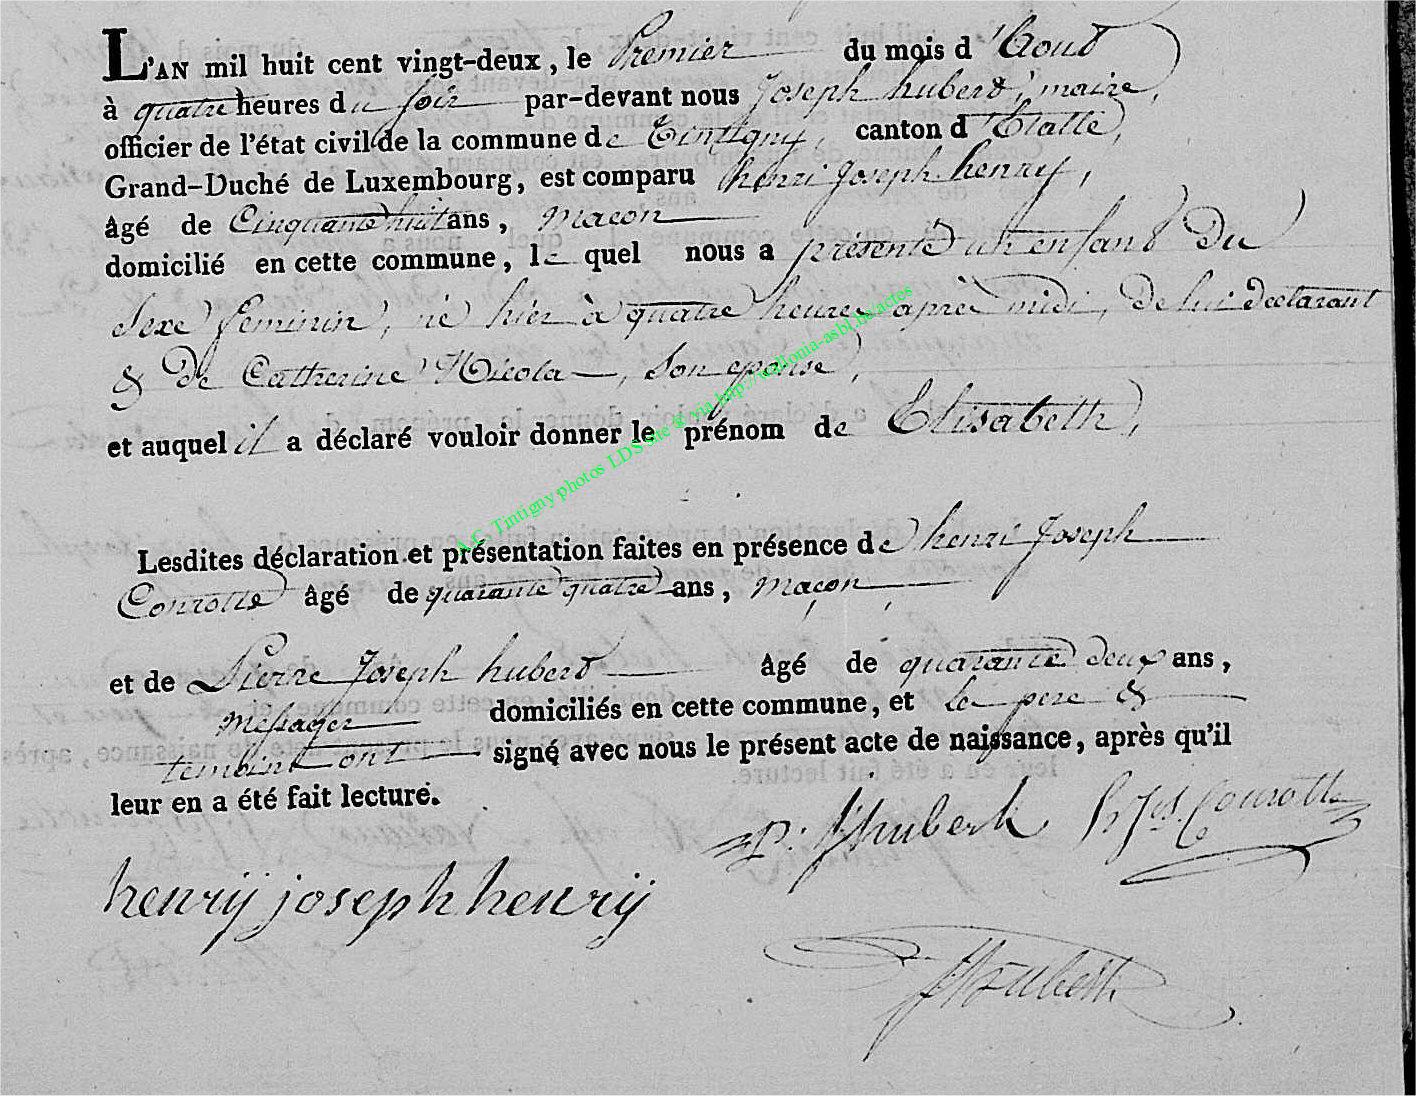 L'AN mil huit cent vingt-deux, le Premier du mois d'Aout
à quatre heures du soir par-devant nous Joseph hubert, maire,
officier de l'état civil de la commune de Tintigny, canton d'Etalle,
Grand-Duché de Luxembourg, est comparu henri Joseph henry,
âgé de Cinquante huit ans, macon
domicilié en cette commune, le quel nous a présenté un enfant Du
Sexe feminin, né hier à quatre heures après midi, de lui declarant
& De Catherine Nicola, son epouse,
et auquel il a déclaré vouloir donner le prénom de Elisabeth,
A.C. Tintigny photos LDS site & via http://wallonia-asbl.be/actes
Lesdites déclaration et présentation faites en présence de henri Joseph
Conrotte âgé de quarante quatre ans, maçon,
et de Pierre Joseph hubert âgé de quarante deux ans,
messager domiciliés en cette commune, et le pere &
temoins ont signé avec nous le présent acte de naissance, après qu'il
leur en a été fait lecture.
P: J hubert h Jos. Conrotte
henrij joseph henrij
J Hubert